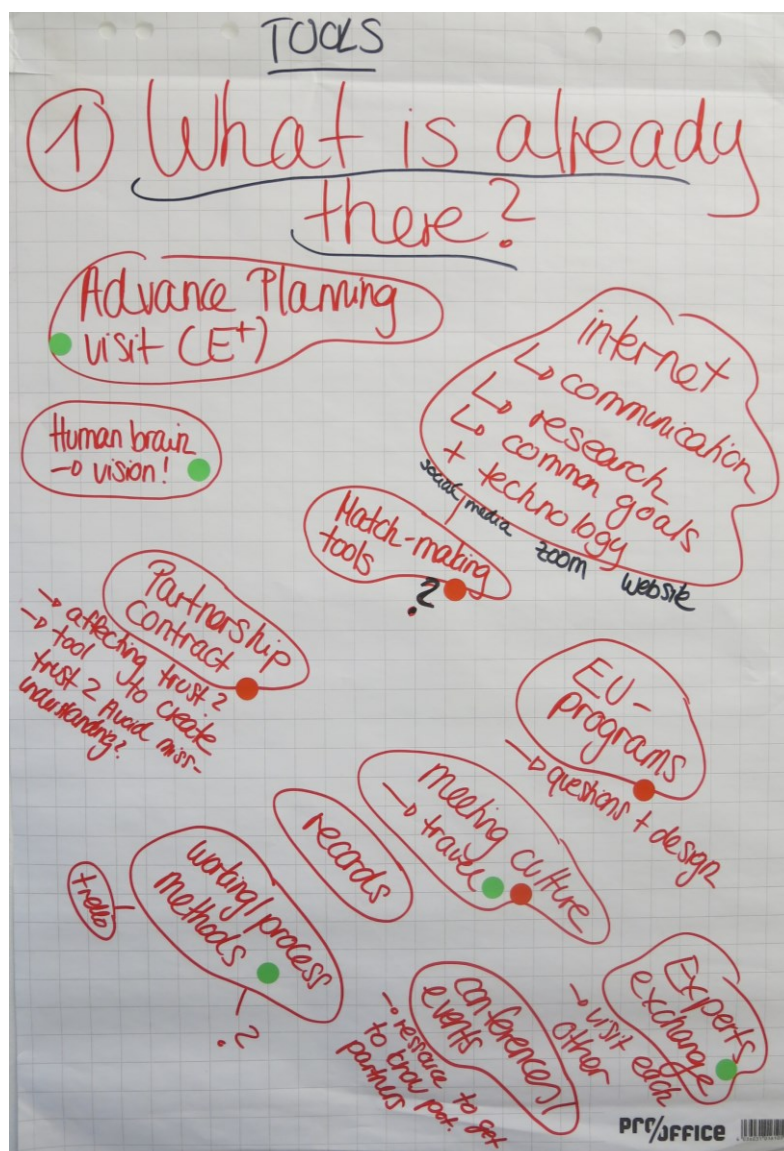 TOOLS
① What is already
there?
Advance Planning
visit (E+)
internet
↳ communication
↳ research
↳ common goals
+ technology
social media
zoom
website
Human brain
→ vision!
Match-making
tools
?
Partnership
contract
→ affecting trust?
→ tool to create
trust? Avoid miss-
understanding?
EU-
programs
→ questions + design
meeting culture
→ travel
records
working/process
methods
trello
?
conferences/
events
→ ressource to get
to know pot.
partners
Experts
exchange
→ visit each
other
PRO/OFFICE